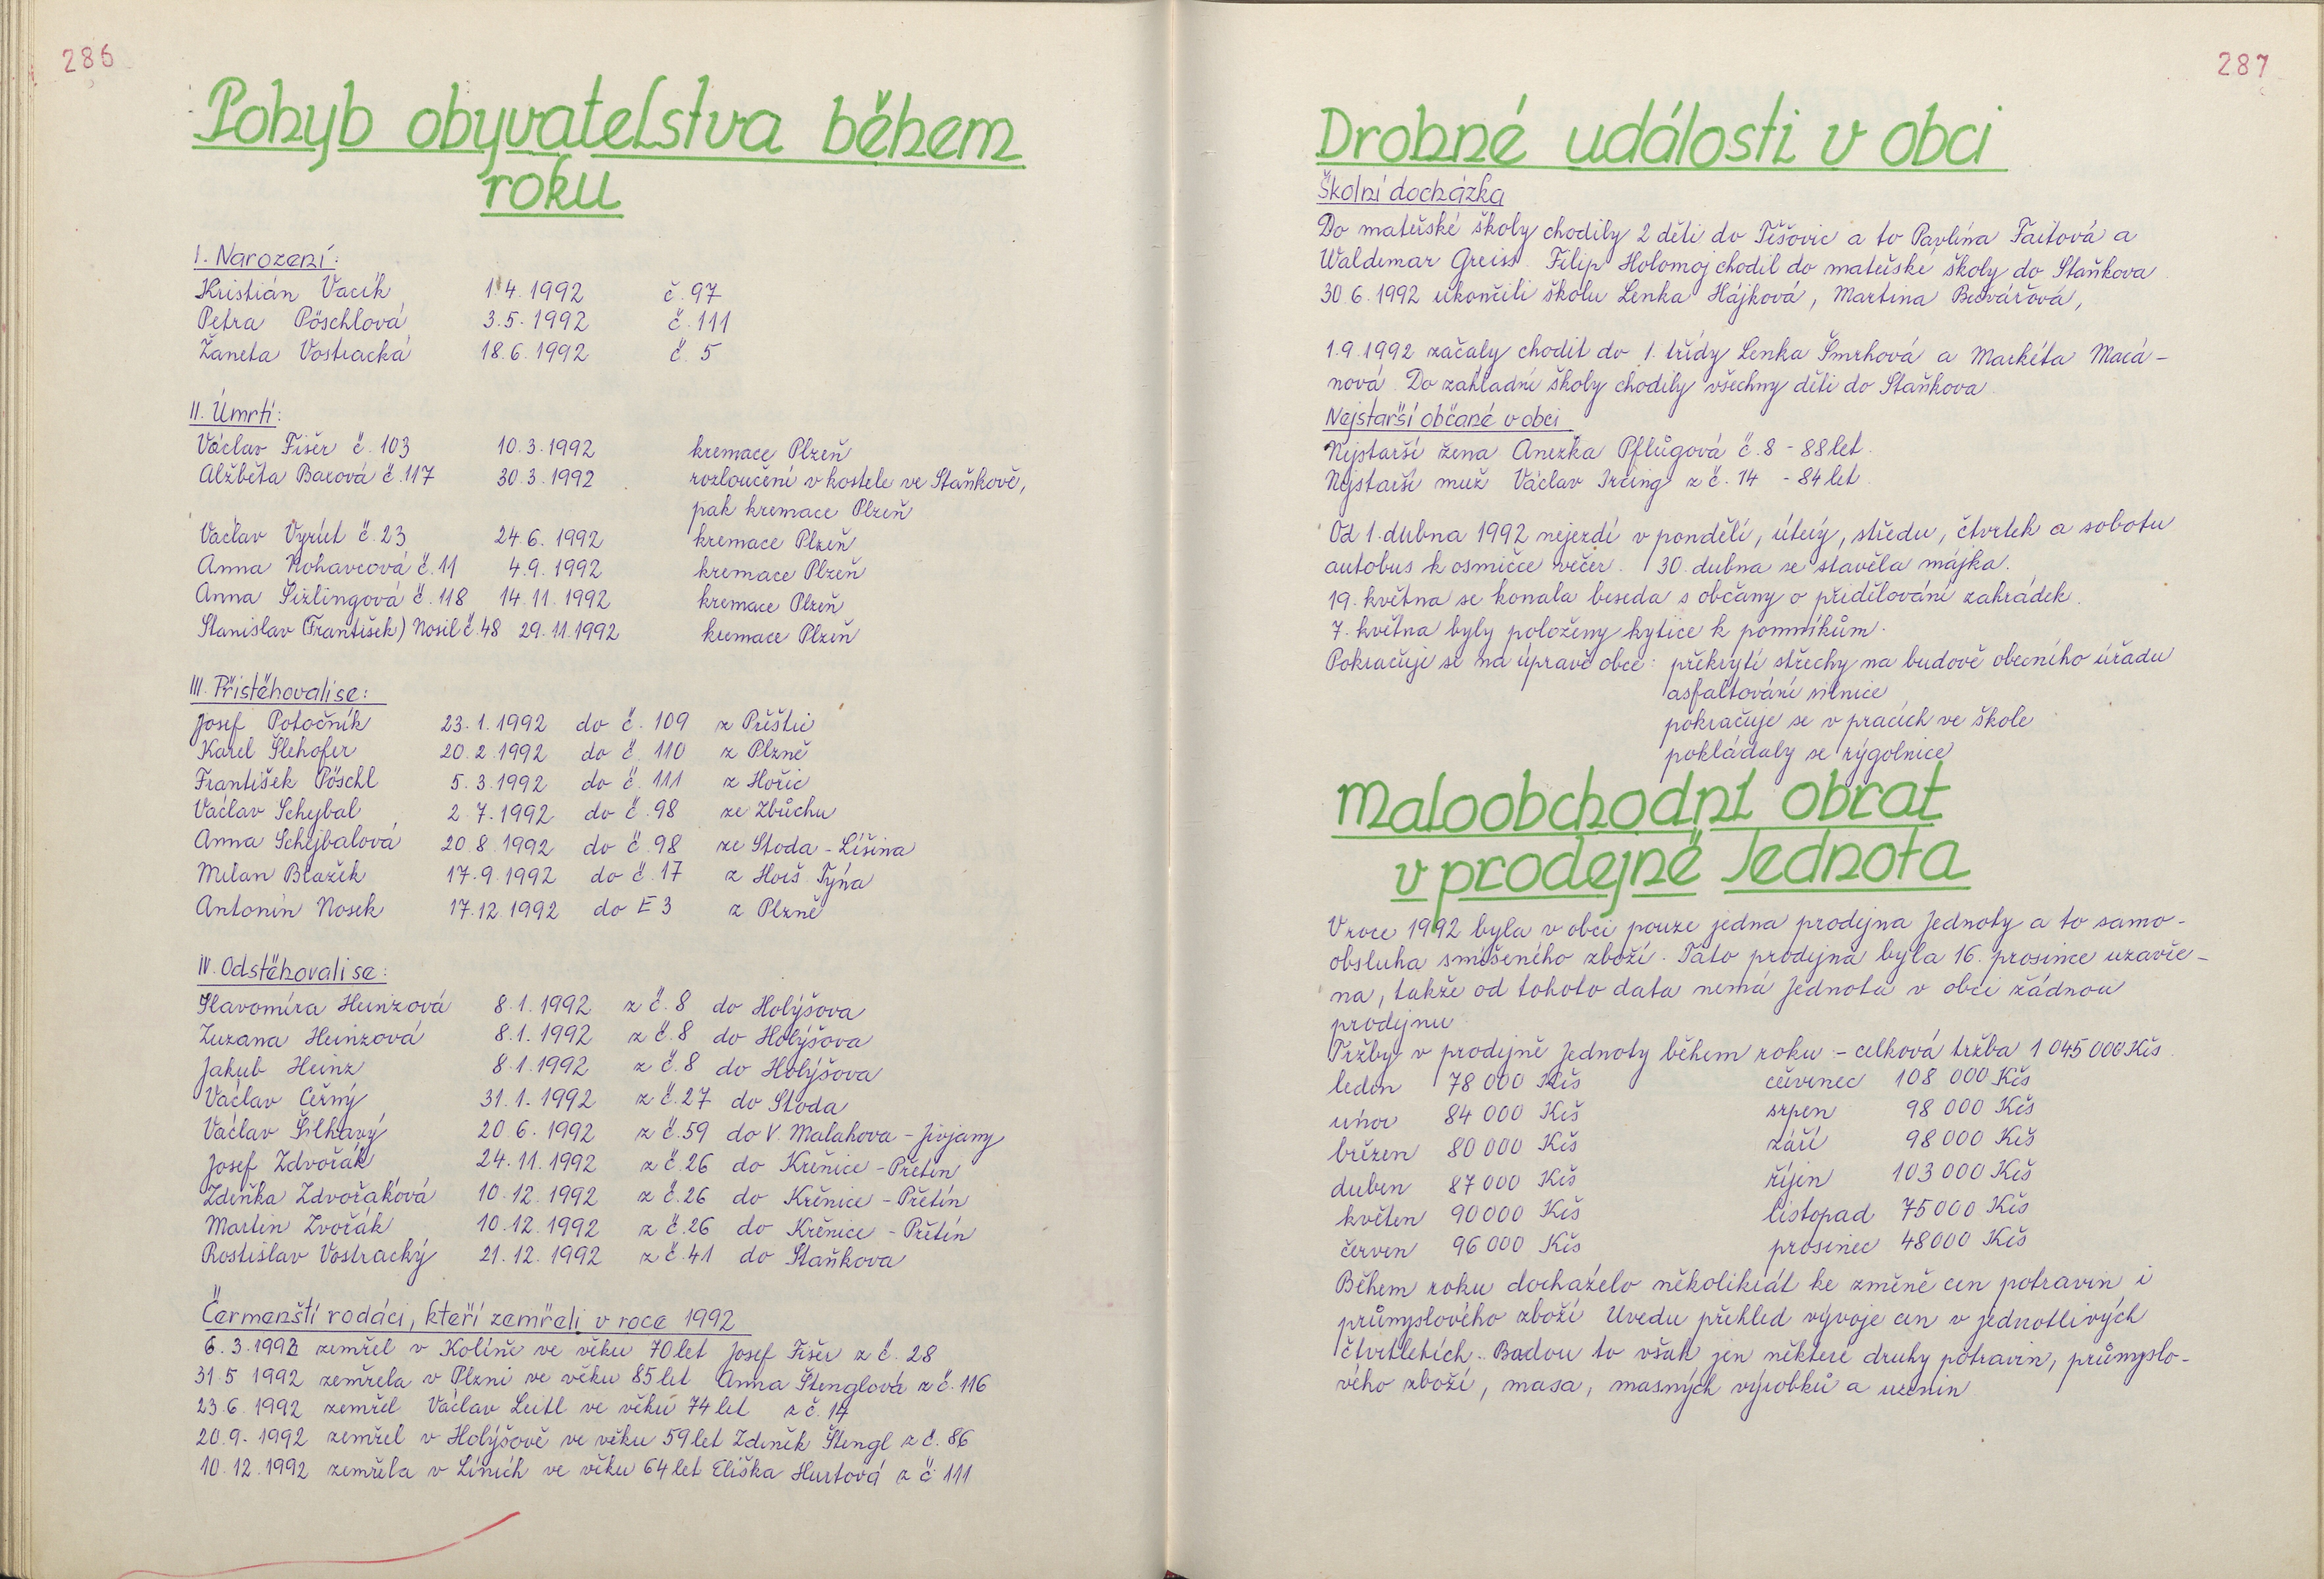 286
Pohyb obyvatelstva během
roku
I. Narození:
Kristián Vacík 1.4.1992 č.97
Petra Pöschlová 3.5.1992 č.111
Žaneta Vostracká 18.6.1992 č.5
II. Úmrtí:
Václav Fišer č.103 10.3.1992 kremace Plzeň
Alžběta Baxová č.117 30.3.1992 rozloučení v kostele ve Staňkově,
pak kremace Plzeň
Václav Vyrút č.23 24.6.1992 kremace Plzeň
Anna Kohavcová č.11 4.9.1992 kremace Plzeň
Anna Šizlingová č.118 14.11.1992 kremace Plzeň
Stanislav (František) Nosil č.48 29.11.1992 kremace Plzeň
III. Přistěhovali se:
Josef Potočník 23.1.1992 do č.109 z Přeštic
Karel Šlehofer 20.2.1992 do č.110 z Plzně
František Pöschl 5.3.1992 do č.111 z Hořic
Václav Schejbal 2.7.1992 do č.98 ze Zbůchu
Anna Schejbalová 20.8.1992 do č.98 ze Stoda - Lišina
Milan Blažek 17.9.1992 do č.17 z Horš. Týna
Antonín Nosek 17.12.1992 do E3 z Plzně
IV. Odstěhovali se:
Slavomíra Heinzová 8.1.1992 z č.8 do Holýšova
Zuzana Heinzová 8.1.1992 z č.8 do Holýšova
Jakub Heinz 8.1.1992 z č.8 do Holýšova
Václav Černý 31.1.1992 z č.27 do Stoda
Václav Šilhavý 20.6.1992 z č.59 do V. Malahova - Jivjany
Josef Zdvořák 24.11.1992 z č.26 do Křenice - Přetín
Zdeňka Zdvořáková 10.12.1992 z č.26 do Křenice - Přetín
Martin Zvořák 10.12.1992 z č.26 do Křenice - Přetín
Rostislav Vostracký 21.12.1992 z č.41 do Staňkova
Čermenští rodáci, kteří zemřeli v roce 1992
6.3.1992 zemřel v Kolíně ve věku 70 let Josef Fišer z č.28
31.5 1992 zemřela v Plzni ve věku 85 let Anna Štenglová z č.116
23.6.1992 zemřel Václav Leitl ve věku 74 let z č.14
20.9.1992 zemřel v Holýšově ve věku 59 let Zdeněk Štengl z č.86
10.12.1992 zemřela v Líních ve věku 64 let Eliška Hurtová z č.111
287
Drobné události v obci
Školní docházka
Do mateřské školy chodily 2 děti do Těšovic a to Pavlína Faitová a
Waldemar Greiss. Filip Holomoj chodil do mateřské školy do Staňkova
30.6.1992 ukončili školu Lenka Hájková, Martina Buvářová,
1.9.1992 začaly chodit do 1. třídy Lenka Šmrhová a Markéta Macá-
nová. Do základní školy chodily všechny děti do Staňkova.
Nejstarší občané v obci
Nejstarší žena Anežka Pflügová č.8 - 88 let.
Nejstarší muž Václav Ircing z č.14 - 84 let.
Od 1. dubna 1992 nejezdí v pondělí, úterý, středu, čtvrtek a sobotu
autobus k osmičce večer. 30. dubna se stavěla májka.
19. května se konala beseda s občany o přidělování zahrádek.
7. května byly položeny kytice k pomníkům.
Pokračuje se na úpravě obce: překrytí střechy na budově obecního úřadu
asfaltování silnice
pokračuje se v pracích ve škole
pokládaly se rýgolnice
Maloobchodní obrat
v prodejně Jednota
V roce 1992 byla v obci pouze jedna prodejna Jednoty a to samo-
obsluha smíšeného zboží. Tato prodejna byla 16. prosince uzavře-
na, takže od tohoto data nemá Jednota v obci žádnou
prodejnu.
Tržby v prodejně Jednoty během roku - celková tržba 1 045 000 Kčs.
leden 78 000 Kčs červenec 108 000 Kčs
únor 84 000 Kčs srpen 98 000 Kčs
březen 80 000 Kčs září 98 000 Kčs
duben 87 000 Kčs říjen 103 000 Kčs
květen 90 000 Kčs listopad 75 000 Kčs
červen 96 000 Kčs prosinec 48 000 Kčs
Během roku docházelo několikrát ke změně cen potravin i
průmyslového zboží. Uvedu přehled vývoje cen v jednotlivých
čtvrtletích. Budou to však jen některé druhy potravin, průmyslo-
vého zboží, masa, masných výrobků a uzenin